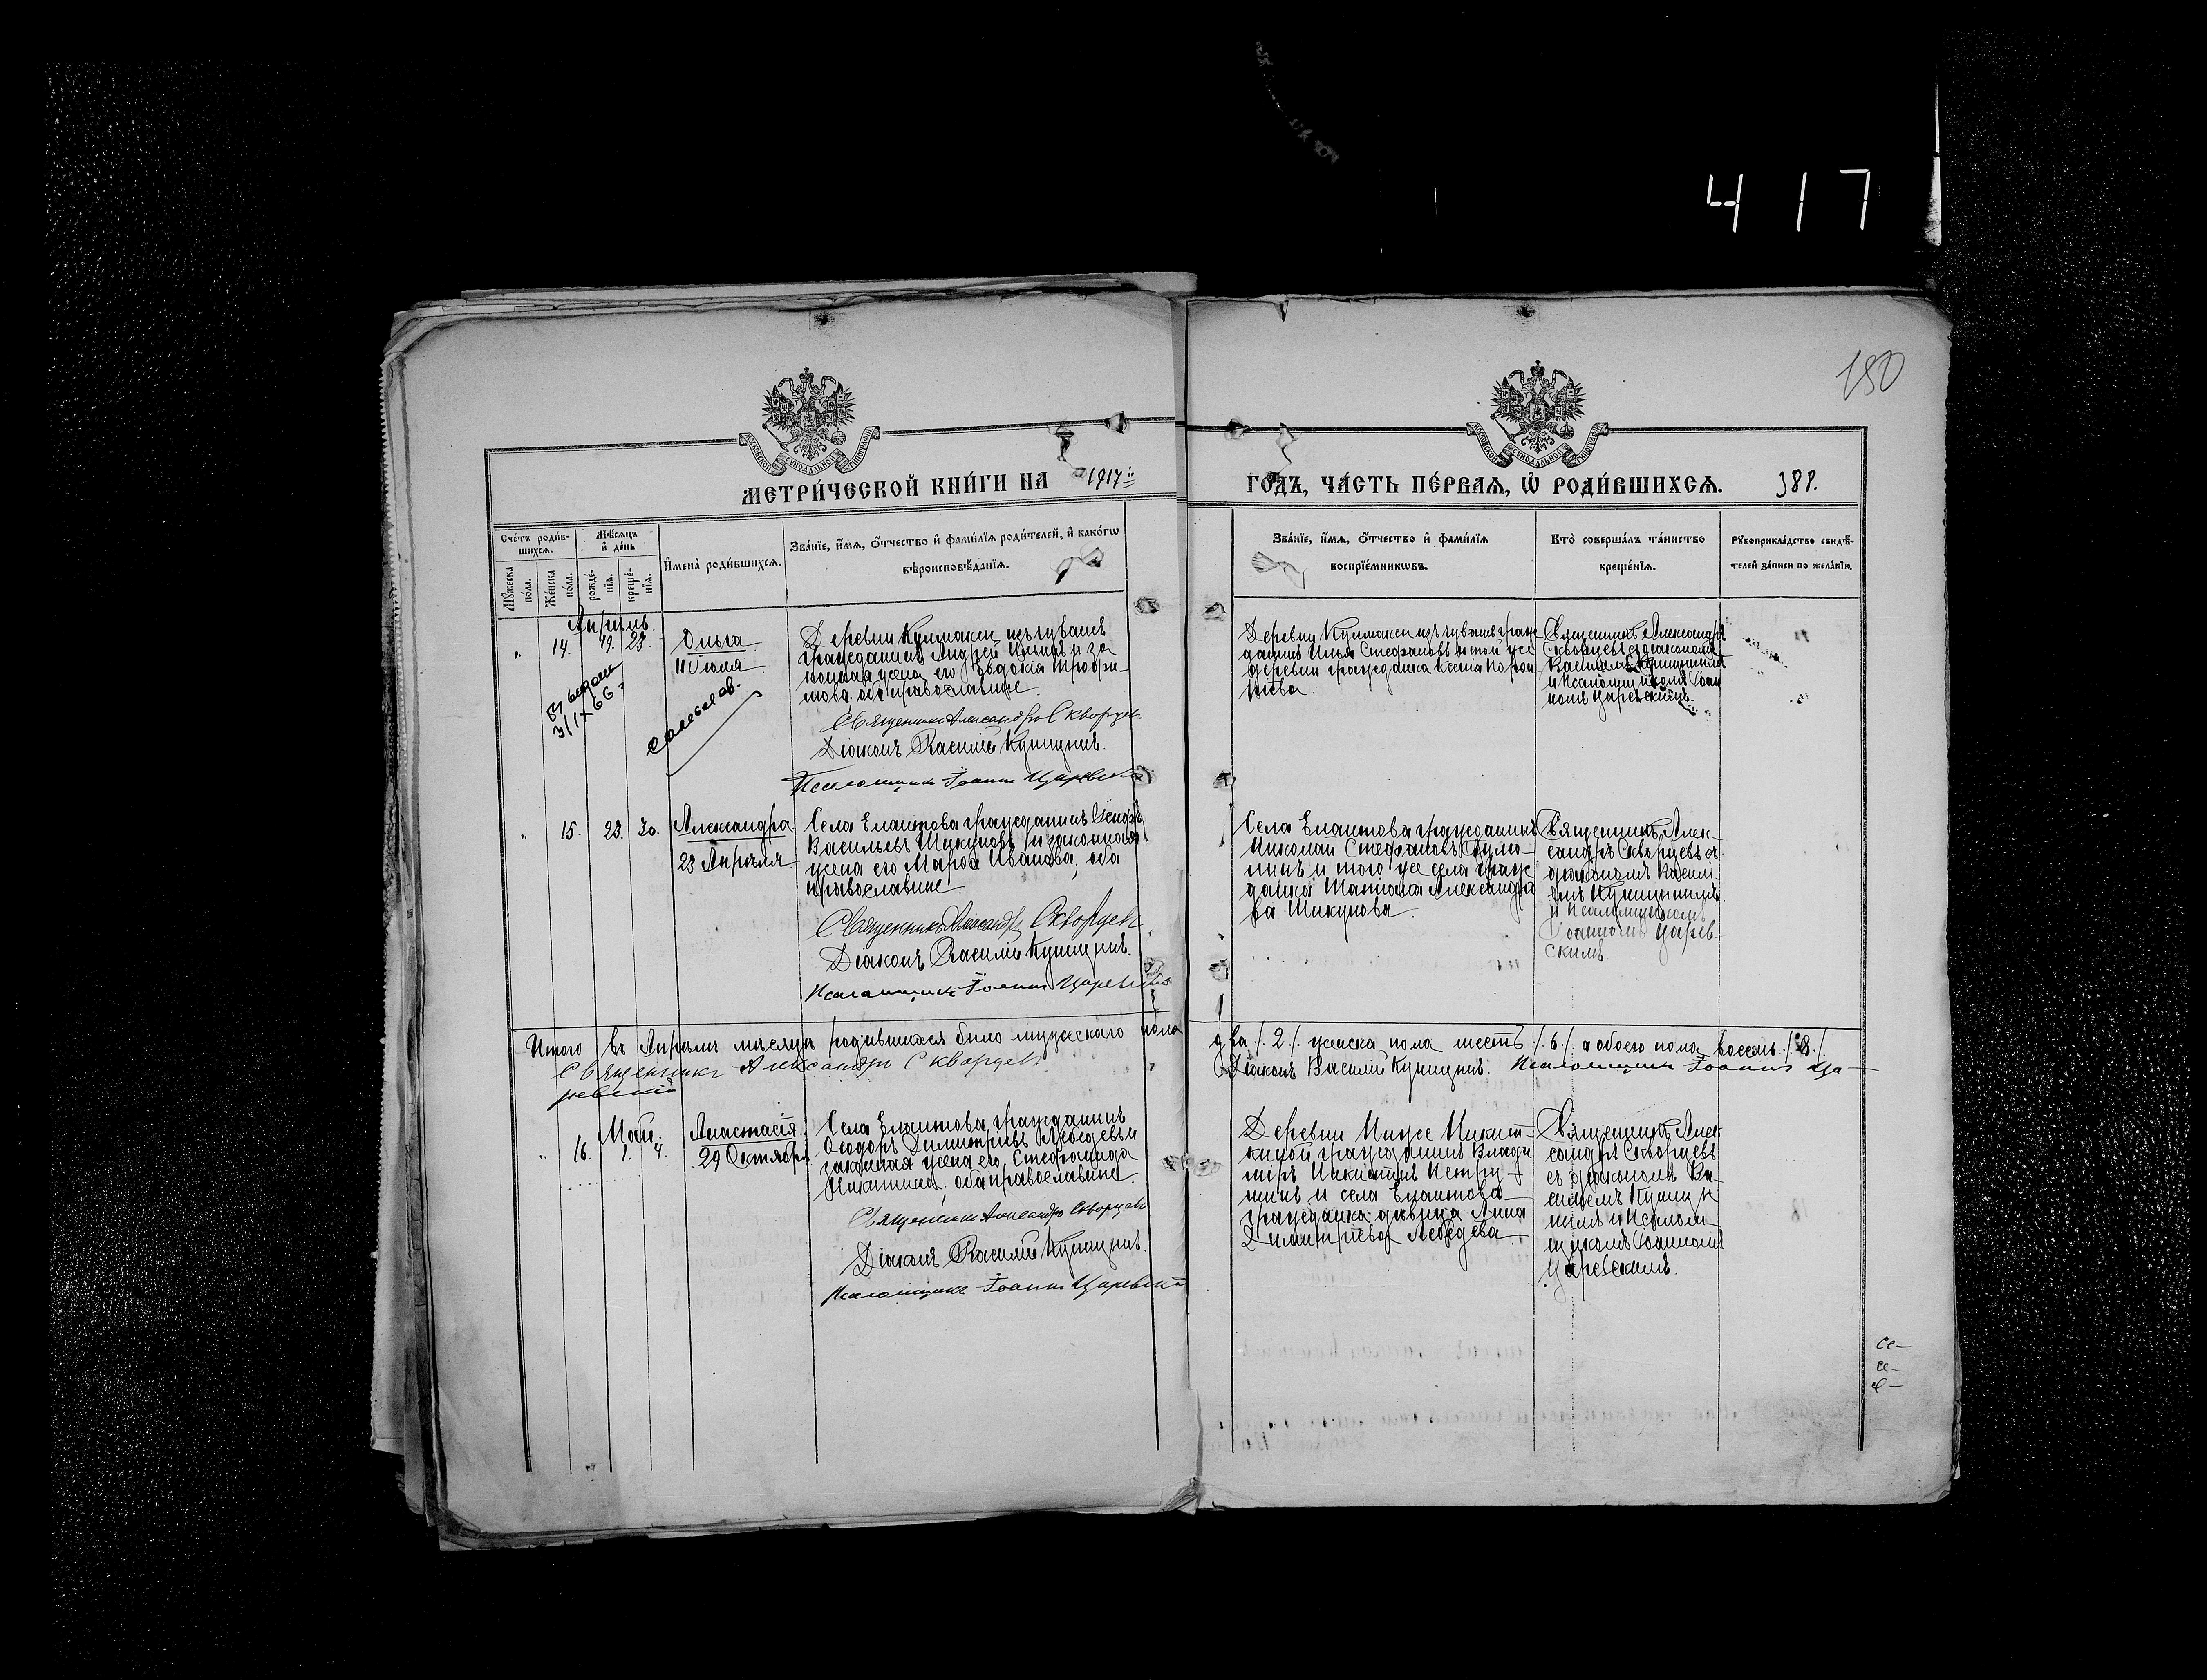 4 1 7
150
МОСКОВСКОЙ СУНОДАЛЬНОЙ ТИПОГРАФІИ
МОСКОВСКОЙ СУНОДАЛЬНОЙ ТИПОГРАФІИ
МЕТРИ́ЧЕСКОЙ КНИ́ГИ НА 1917 й
ГО́ДЪ, ЧА́СТЬ ПЕ́РВАѦ, Ѡ҆ РОДИ́ВШИХСѦ. 388.
Сче́тъ роди́в-
шихсѧ.
Мꙋ́жеска по́ла.
Же́нска по́ла.
Мѣ́сѧцъ и҆ де́нь
рожде́-
нїѧ.
креще́-
нїѧ.
И҆мена̀ роди́вшихсѧ.
Зва́нїе, и҆́мѧ, ѻ҆́тчество и҆ фами́лїѧ роди́телей, и҆ како́гѡ
вѣроисповѣ́данїѧ.
Зва́нїе, и҆́мѧ, ѻ҆́тчество и҆ фами́лїѧ
воспрїе́мникѡвъ.
Кто̀ соверша́лъ та́инство
креще́нїѧ.
Рꙋкоприкла́дство свидѣ́-
телей за́писи по жела́нїю.
Апрѣль
14. 19. 23.
Ольга
11 Іюля
31/IX 66
Деревни Кулмакси изъ чувашъ
гражданинъ Андрей Ильинъ и за
конная жена его Евдокія Трофи-
мова, оба православные.
Священникъ Александръ Скворцевъ
Діаконъ Василій Купицынъ.
Псаломщикъ Іоаннъ Царевскій
Деревни Кулмакси изъ чувашъ граж-
данинъ Илья Стефановъ и той же
деревни гражданка Ксенія
Священникъ Александръ
Скворцевъ съ діакономъ
и псаломщикомъ Іоан
номъ Царевскимъ.
15. 23. 30.
Александра
23 Апрѣля
Села Елаптова гражданинъ
Васильевъ Шикуновъ и законная
жена его Марѳа Иванова, оба
православные.
Священникъ Александръ Скворцевъ
Діаконъ Василій Купицынъ.
Псаломщикъ Іоаннъ Царевскій
Села Елаптова гражданинъ
Николай Стефановъ
и того же села граж
данка Татіана Александро
ва Шикунова.
Священникъ Алек-
сандръ Скворцевъ съ
діакономъ Васили-
емъ Купицынымъ
и псаломщикомъ
Іоанномъ Царев-
скимъ
Итого въ Апрѣлѣ мѣсяцѣ родившихся было мужескаго пола два /2/ женска пола шесть /6/ а обоего пола восемь /8/
Священникъ Александръ Скворцевъ Діаконъ Василій Купицынъ. Псаломщикъ Іоаннъ Ца-
ревскій
Май.
16. 1. 4.
Анастасія
29 Октября
Села Елаптова гражданинъ
Ѳеодоръ Димитріевъ Лебедевъ и
законная жена его Стефанида
Никитина, оба православные.
Священникъ Александръ Скворцевъ
Діаконъ Василій Купицынъ.
Псаломщикъ Іоаннъ Царевскій
Деревни
гражданинъ Влади
міръ Никитинъ
и села Елаптова
гражданка дѣвица Анна
Димитріева Лебедева.
Священникъ Алек
сандръ Скворцевъ
съ діакономъ Ва-
силіемъ Купицы
нымъ и псалом-
щикомъ Іоанномъ
Царевскимъ.